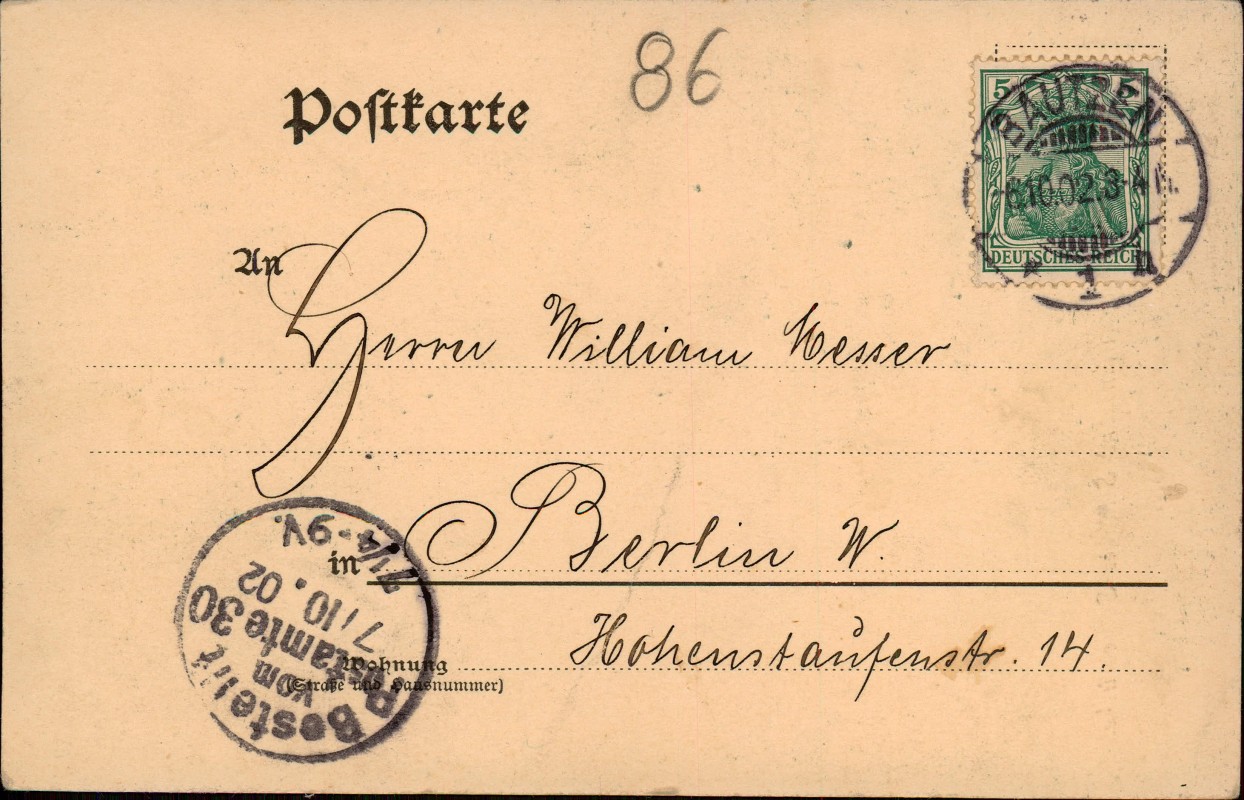 86
Postkarte
5 5
BAUTZEN
6.10.02.3-4 N.
* 1 n
DEUTSCHES REICH
An
Herrn William Messer
in Berlin W.
Wohnung Hohenstaufenstr. 14.
(Straße und Hausnummer)
Bestellt
vom
Postamte 30
7/10. 02
7 1/4-9V.